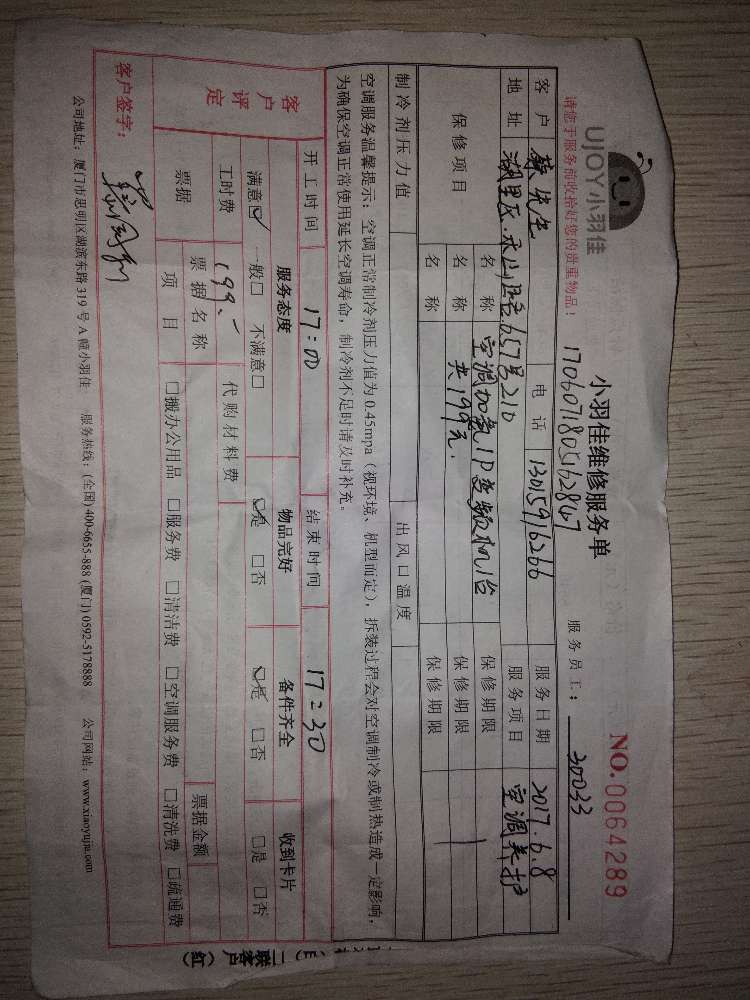 UJOY小羽佳
小羽佳维修服务单
NO.0064289
请您于服务前收拾好您的贵重物品！
1706071805162847
服务员工： 30033
客户 蔡先生 电话 13015916266 服务日期 2017.6.8
地址 湖里区 657号210 服务项目 空调养护
保修项目 名称 空调加氟1P变频机1台 保修期限
名称 共199元. 保修期限
名称 保修期限
制冷剂压力值 出风口温度
空调服务温馨提示：空调正常制冷剂压力值为0.45mpa（视环境、机型而定），拆装过程会对空调制冷或制热造成一定影响，
为确保空调正常使用延长空调寿命，制冷剂不足时请及时补充。
开工时间 17:00 结束时间 17:30
客户评定 服务态度 物品完好 备件齐全 收到卡片
满意☑ 一般□ 不满意□ ☑是 □否 ☑是 □否 □是 □否
工时费 199.- 代购材料费
票据 票据名称 票据金额
项目 □搬办公用品 □服务费 □清洁费 □空调服务费 □清洗费 □疏通费
客户签字：
公司地址：厦门市思明区湖滨东路319号A幢小羽佳 服务热线：(全国)400-6655-888 (厦门)0592-5178888 公司网站：www.xiaoyujia.com
二联客户（红）